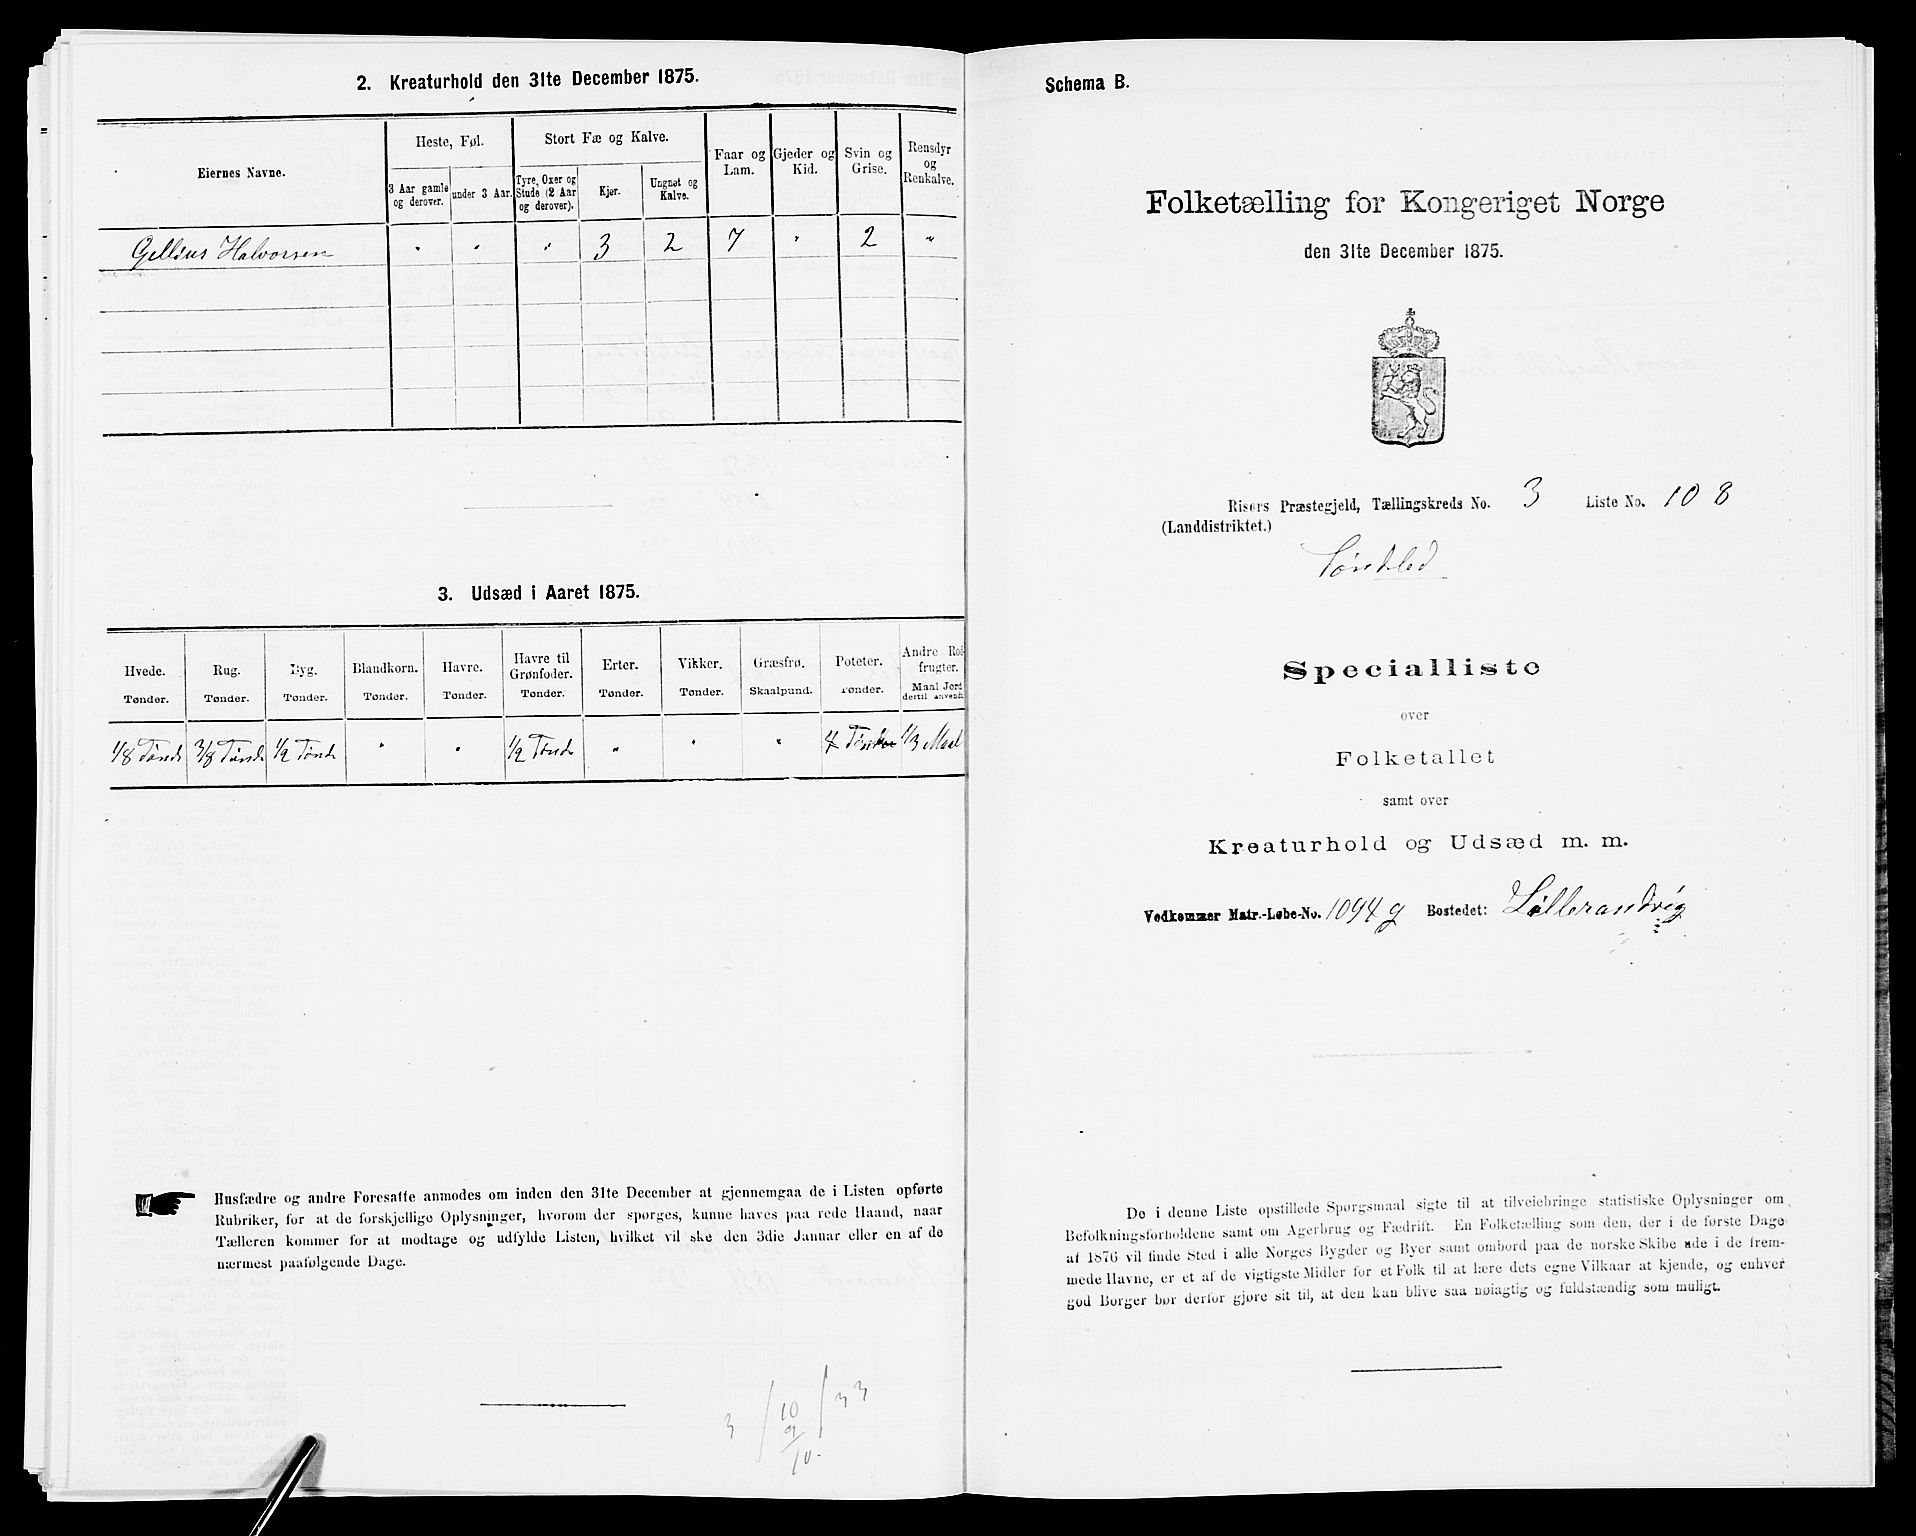 2. Kreaturhold den 31te December 1875.
Eiernes Navne.
Heste, Føl.
Stort Fæ og Kalve.
Faar og Lam.
Gjeder og Kid.
Svin og Grise.
Rensdyr og Renkalve.
3 Aar gamle og derover.
under 3 Aar.
Tyre, Oxer og Stude (2 Aar og derover).
Kjør.
Ungnøt og Kalve.
Gellius Halvorsen " " " 3 2 7 " 2 "
3. Udsæd i Aaret 1875.
Hvede. Rug. Byg. Blandkorn. Havre. Havre til Grønfoder. Erter. Vikker. Græsfrø. Poteter. Andre Rodfrugter.
Tønder. Tønder. Tønder. Tønder. Tønder. Tønder. Tønder. Tønder. Skaalpund. Tønder. Maal Jord dertil anvendt
1/8 Tønde 3/8 Tønde 1/2 Tønde " " 1/2 Tønde " " " 4 Tønder 1/3 Maal
Husfædre og andre Foresatte anmodes om inden den 31te December at gjennemgaa de i Listen opførte
Rubriker, for at de forskjellige Oplysninger, hvorom der spørges, kunne haves paa rede Haand, naar
Tælleren kommer for at modtage og udfylde Listen, hvilket vil ske den 3die Januar eller en af de
nærmest paafølgende Dage.
3 / 10 / 33
9
10.
Schema B.
Folketælling for Kongeriget Norge
den 31te December 1875.
Risørs Præstegjeld, Tællingskreds No. 3 Liste No. 108
(Landdistriktet.)
Søndeled
Specialliste
over
Folketallet
samt over
Kreaturhold og Udsæd m. m.
Vedkommer Matr.-Løbe-No. 1094 g Bostedet: Lillerandvig
De i denne Liste opstillede Spørgsmaal sigte til at tilveiebringe statistiske Oplysninger om
Befolkningsforholdene samt om Agerbrug og Fædrift. En Folketælling som den, der i de første Dage
af 1876 vil finde Sted i alle Norges Bygder og Byer samt ombord paa de norske Skibe ude i de frem-
mede Havne, er et af de vigtigste Midler for et Folk til at lære dets egne Vilkaar at kjende, og enhver
god Borger bør derfor gjøre sit til, at den kan blive saa nøiagtig og fuldstændig som muligt.